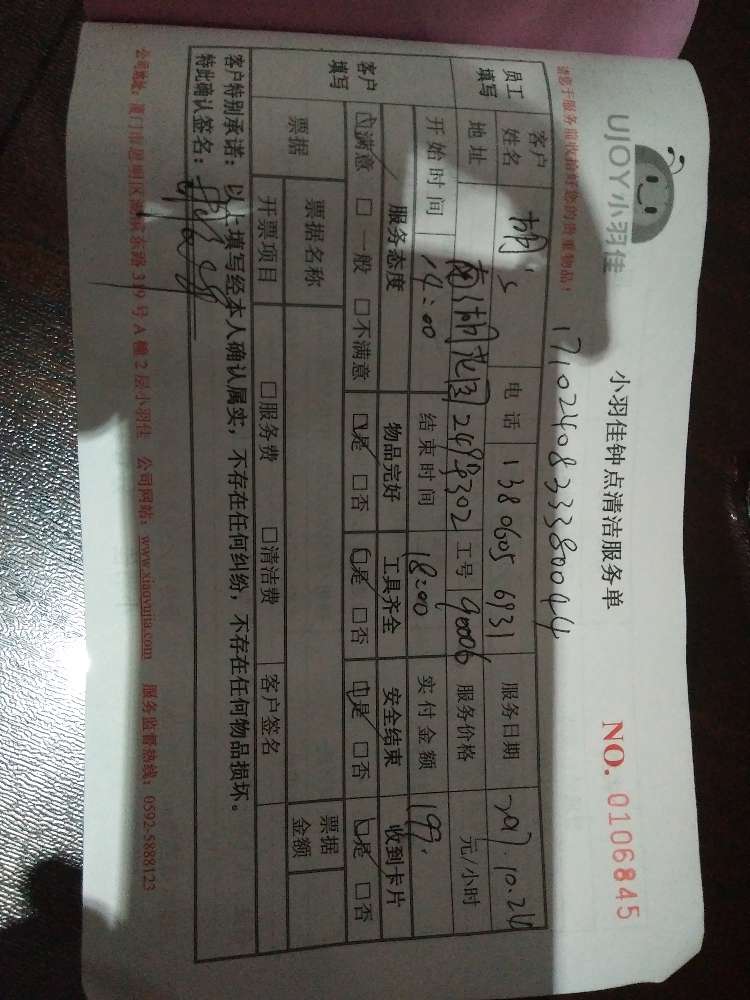 UJOY小羽佳
小羽佳钟点清洁服务单
NO. 0106845
请您于服务前收拾好您的贵重物品！
17102408333380044
员工填写
客户姓名 胡 电话 13806056931 服务日期 2017.10.24
地址 南湖花园249号302 工号 90006 服务价格 元/小时
开始时间 14:00 结束时间 18:00 实付金额 199.
客户填写
服务态度 物品完好 工具齐全 安全结束 收到卡片
满意 一般 不满意 是 否 是 否 是 否 是 否
票据 票据名称 票据金额
开票项目 服务费 清洁费 客户签名
客户特别承诺：以上填写经本人确认属实，不存在任何纠纷，不存在任何物品损坏。
特此确认签名：
公司地址：厦门市思明区湖滨东路319号A幢2层小羽佳 公司网站：www.xiaoyujia.com 服务监督热线：0592-5888123